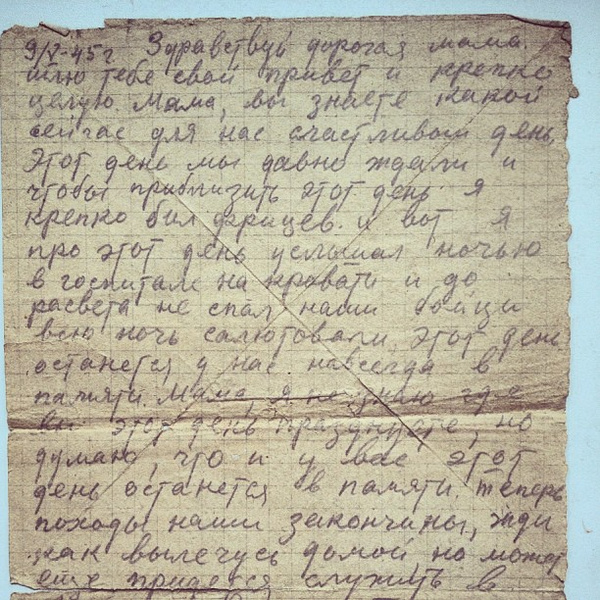 9/V-45г Здравствуй дорогая мама.
шлю тебе свой привет и крепко
целую. Мама, вы знаете какой
сейчас для нас счастливый день,
Этот день мы давно ждали и
чтобы приблизить этот день я
крепко бил фрицев. и вот я
про этот день услышал ночью
в госпитале на кровати и до
расвета не спал наши бойци
всю ночь салютовали. этот день
останется у нас навсегда в
памяти. Мама, я не знаю где
вы этот день празднуете, но
думаю, что и у вас этот
день останется в памяти. Теперь
походы наши закончины, жди
как вылечусь домой но может
еще придется служить в